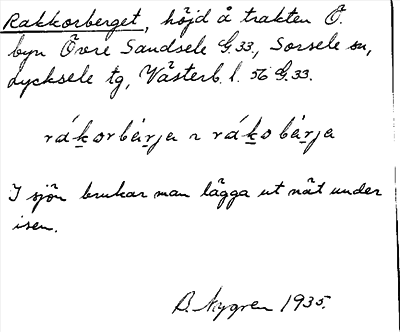 Rakkorberget, höjd å trakten Ö.
byn Övre Sandsele G.33, Sorsele sn,
Lycksele tg, Västerb. l. 56 G.33.
rákorbárja ~ rákobárja
I sjön brukar man lägga ut nät under
isen.
B. Nygren 1935.